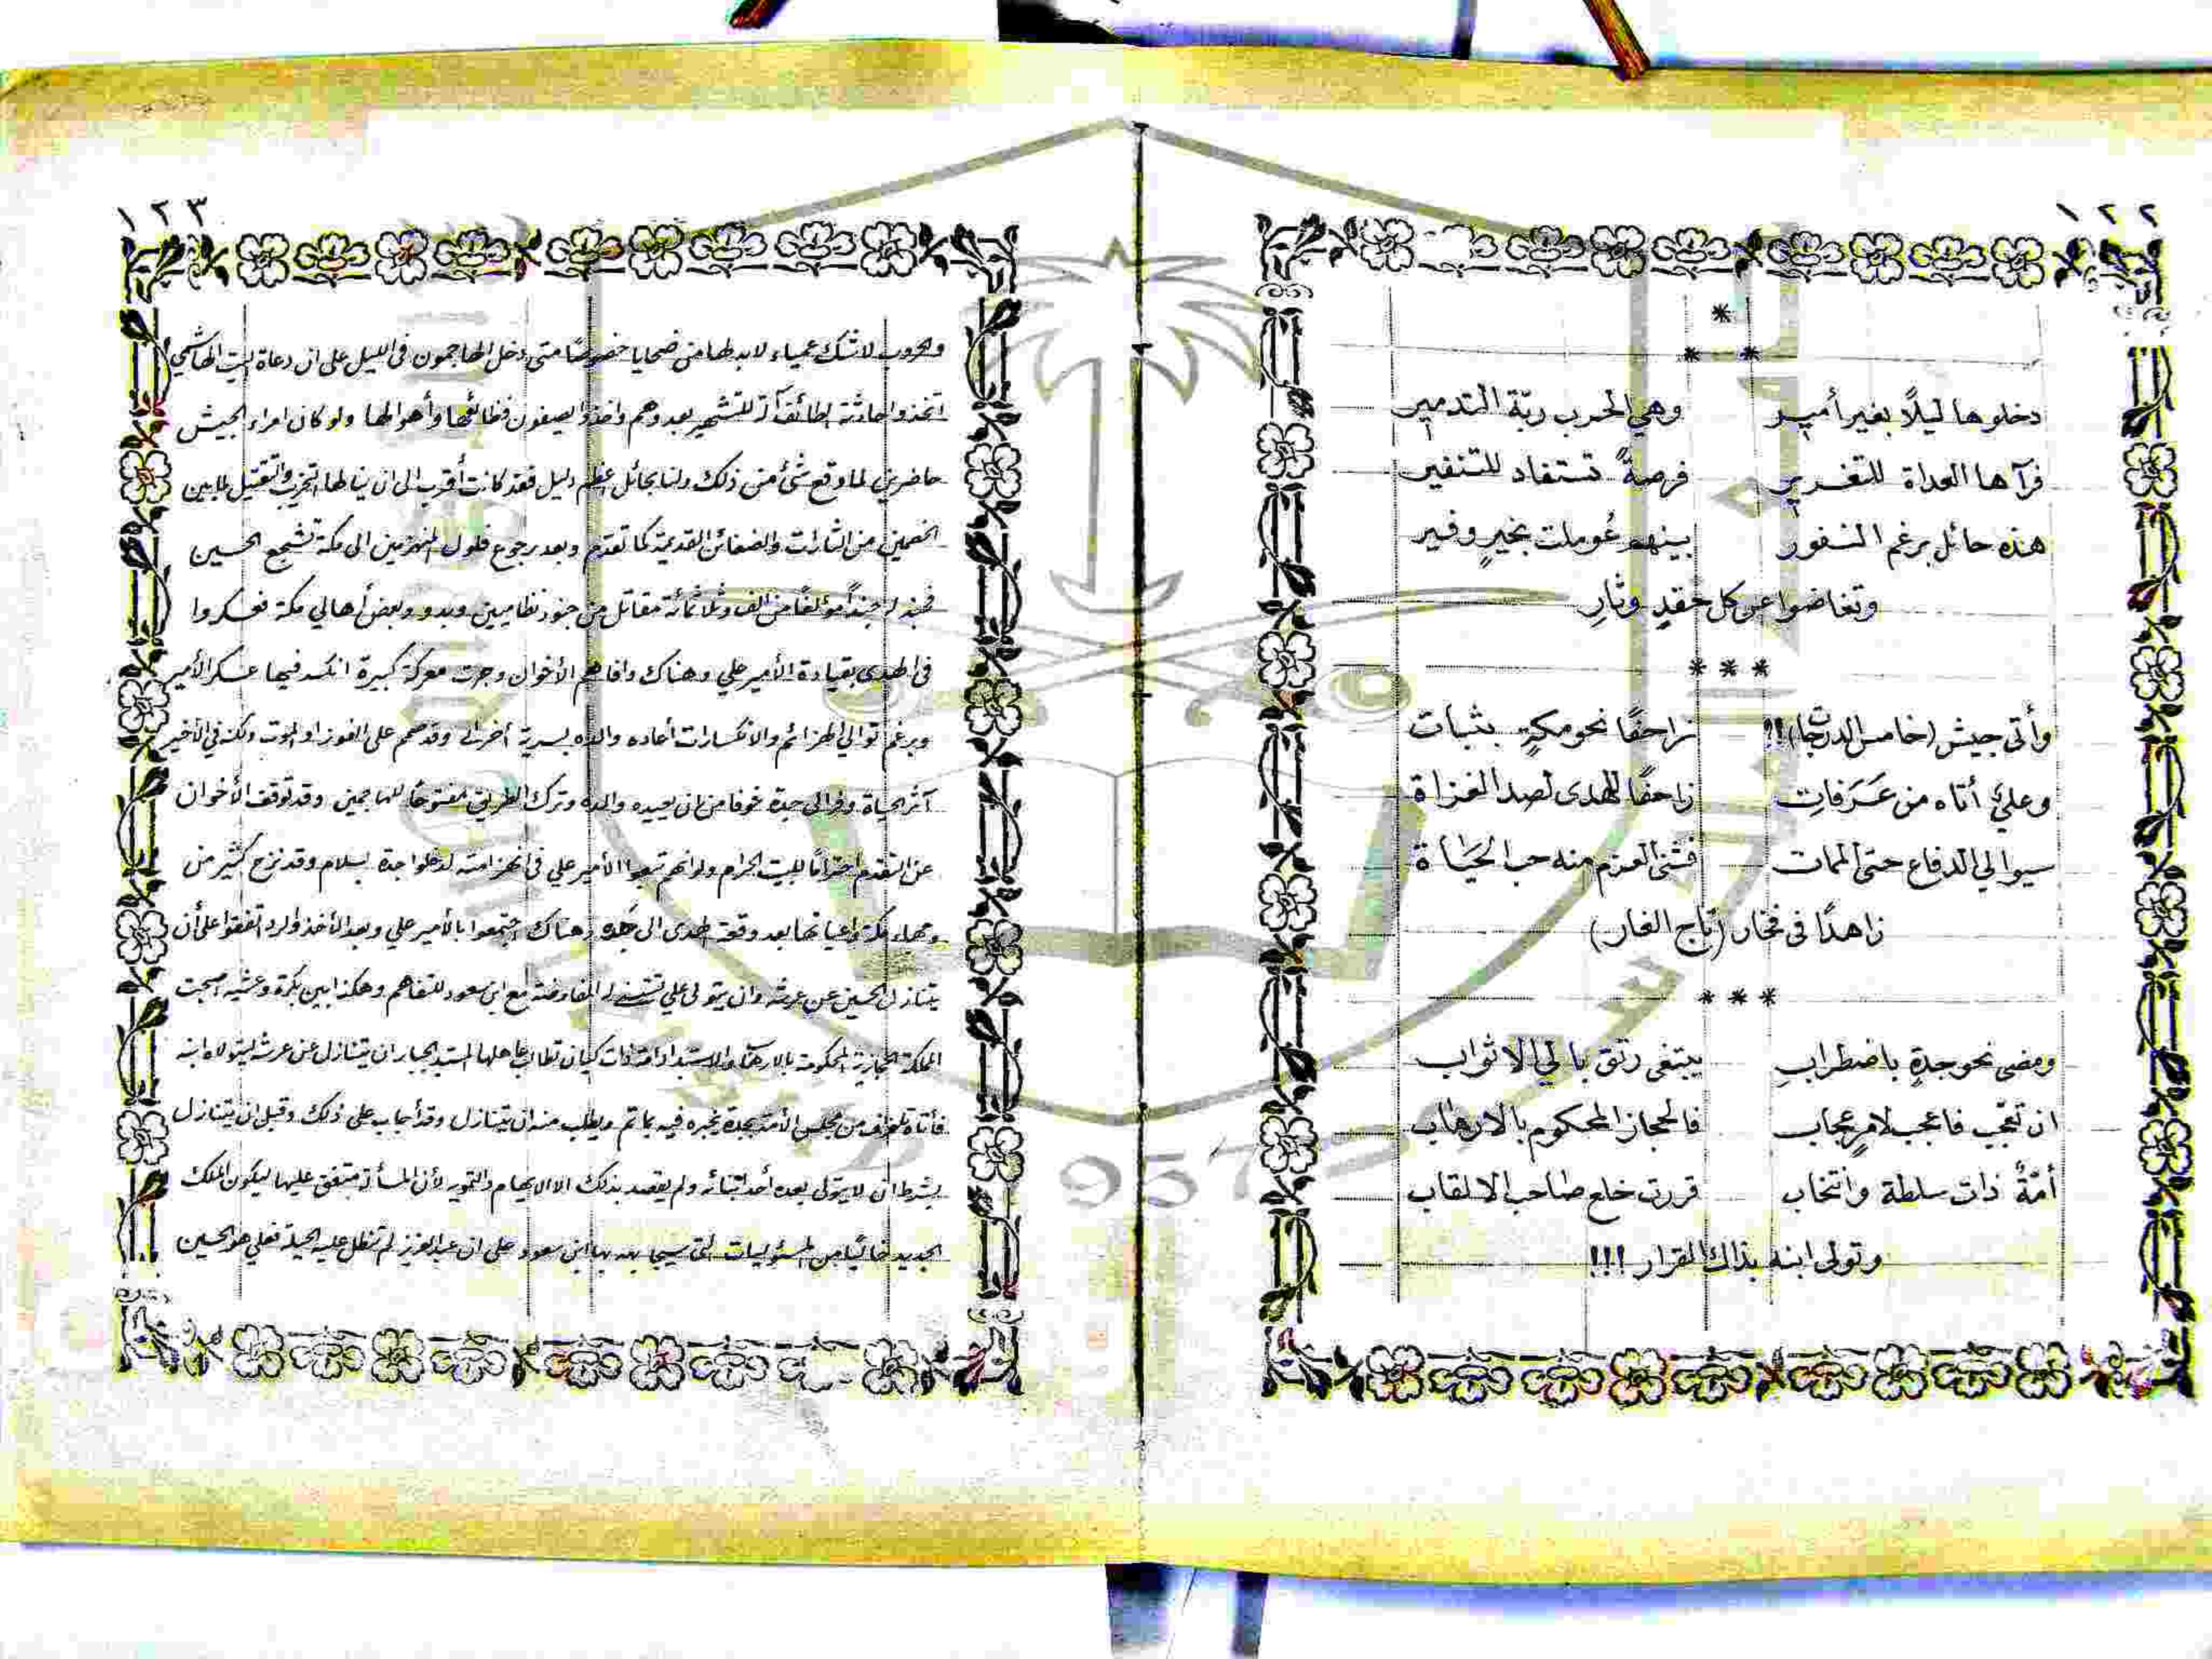 ١٢٢
*
* *
دخلوها ليلًا بغير أمير وهي الحرب ربّة التدمير
فرآها العداة للتغرير فرصةً تستفاد للتنفير
هذه حائل برغم النفور بينهم عُوملت بخيرٍ وفير
وتغاضوا عن كل حقدٍ وثارِ
* * *
وأتى جيش (خامس الدرجات)!! زاحفًا نحو مكةٍ بثبات
وعليٌ أتاه من عَرَفاتِ زاحفًا للهدى لصد الغزاة
سيوالي الدفاع حتى الممات فثنى العزم منه حب الحَيَاة
زاهدًا فى فخار (تاج الغار)
* * *
ومضى نحو جدةٍ باضطرابِ يبتغى رتق بالي الاثواب
ان تعجّب فاعجب لامرٍ عجاب فالحجاز المحكوم بالارهاب
أمّةٌ ذات سلطة وانتخاب قررت خلع صاحب الالقاب
وتولى ابنه بذاك القرار !!!
١٢٣
والحروب لاشك عمياء لابد لها من ضحايا خصوصًا متى دخل المهاجمون فى الليل على ان دعاة البيت الهاشمي
اتخذوا حادثة الطائف آلة للتشهير بعدوهم واخذوا يصفون فظائعها وأهوالها ولو كان امراء الجيش
حاضرين لما وقع شئ من ذلك ولنا بحائل اعظم دليل فقد كانت أقرب الى ان ينالها التخريب والتقتيل لما بين
الخصمين من الثارات والضغائن القديمة كما تقدم وبعد رجوع فلول المنهزمين الى مكة تشجع الحسين
فجند له جيندًا مؤلفًا من الف وثلاثمائة مقاتل من جنود نظاميين وبدو وبعض أهالي مكة فعسكروا
فى الهدى بقيادة الأمير علي وهناك وافاهم الأخوان وجرت معركة كبيرة انكسر فيها عسكر الأمير
وبرغم توالي الهزائم والانكسارات أعاده والده بسرية أخرى وقد صمم على الفوز او الموت ولكنه فى الأخير
آثر الحياة وفر الى جدة خوفا من ان يعيده والده وترك الطريق مفتوحًا للمهاجمين وقد توقف الأخوان
عن التقدم احترامًا للبيت الحرام ولو انهم تبعوا الأمير علي فى انهزامته لدخلوا جدة بسلام وقد نزح كثير من
وجهاء مكة واعيانها بعد وقعة الهدى الى جدة وهناك اجتمعوا بالأمير علي وبعد الأخذ والرد اتفقوا على أن
يتنازل الحسين عن عرشه وان يتولى علي المفاوضة مع ابن سعود للتفاهم وهكذا بين بكرة وعشية اصبحت
المملكة الحجازية المحكومة بالارهاب والاستبداد امة ذات كيان تطالب عاهلها المستبد الجبار ان يتنازل عن عرشه ليتولاه ابنه
فأتاه تلغراف من مجلس الأمة بجدة يخبره فيه بما تم ويطلب منه ان يتنازل وقد أجاب على ذلك وقبل ان يتنازل
بشرط ان لا يتولى بعده أحد ابنائه ولم يقصد بذلك الا الايهام والتمويه لأن المسألة متفق عليها ليكون الملك
الجديد خاليًا من المسئوليات التى سيجابهه بها ابن سعود على ان عبدالعزيز لم تنطل عليه الحيلة فعلي هو الحسين